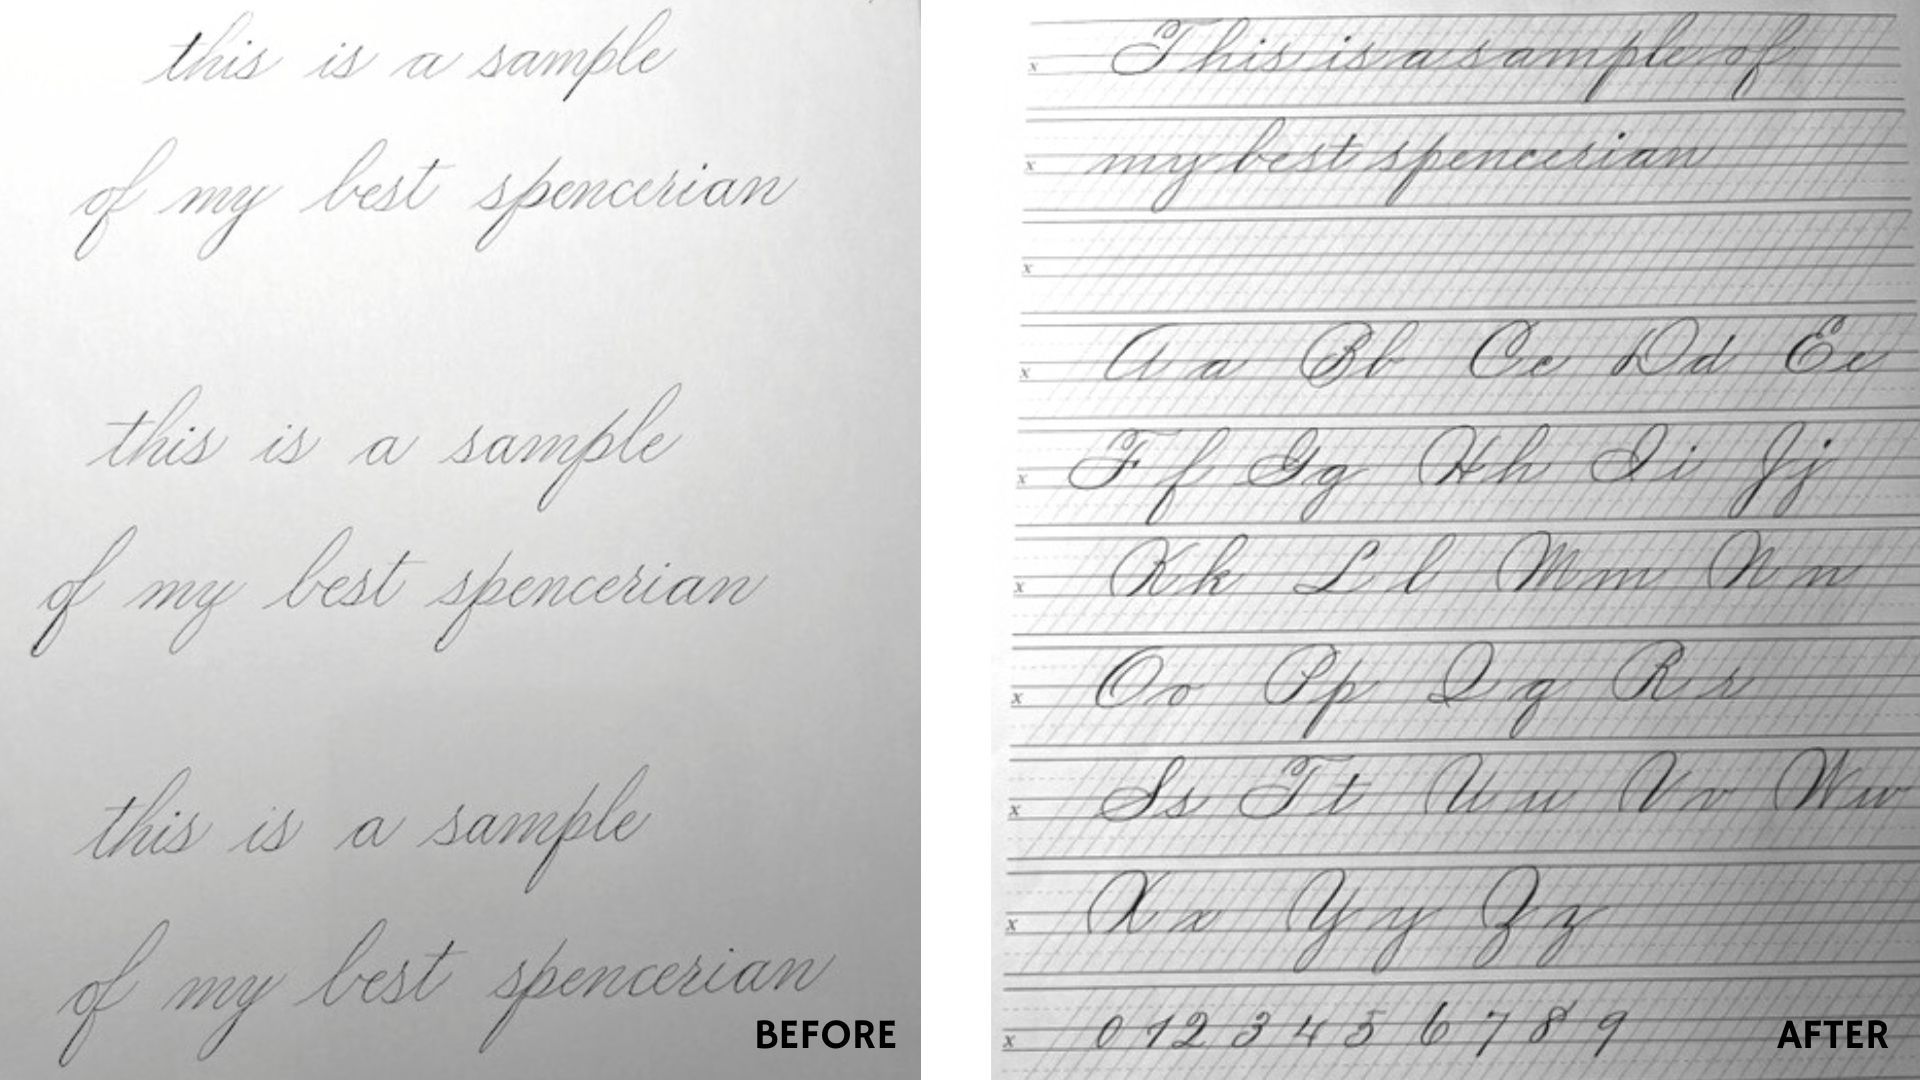 this is a sample
of my best spencerian
this is a sample
of my best spencerian
this is a sample
of my best spencerian
BEFORE
x This is a sample of
x my best spencerian
x
x A a B b C c D d E e
x F f G g H h I i J j
x K k L l M m N n
x O o P p Q q R r
x S s T t U u V v W w
x X x Y y Z z
x 0 1 2 3 4 5 6 7 8 9
AFTER